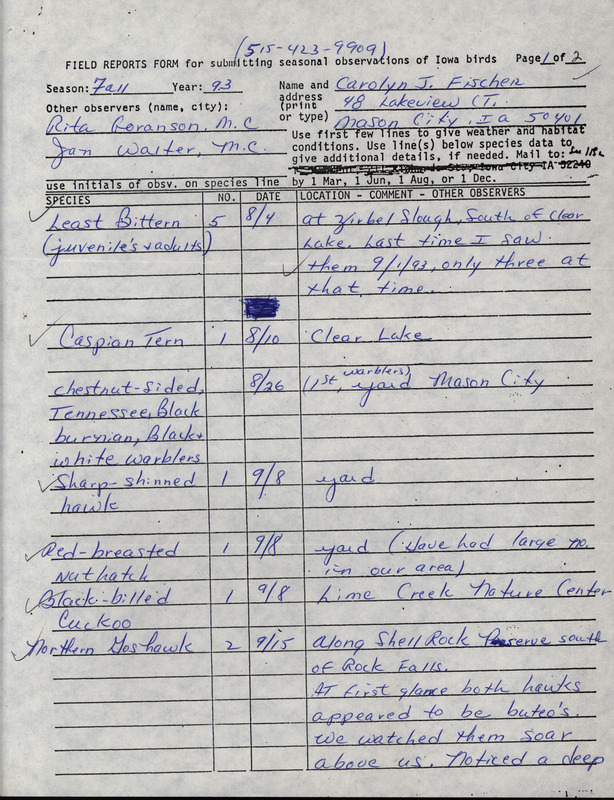 (515-423-9909)
FIELD REPORTS FORM for submitting seasonal observations of Iowa birds Page 1 of 2
Season: Fall Year: 93 Name and Carolyn J. Fischer
address 48 Lakeview CT.
Other observers (name, city): (print
or type) Mason City, Ia 50401
Rita Goranson, M.C
Jan Walter, M.C.
Use first few lines to give weather and habitat
conditions. Use line(s) below species data to
give additional details, if needed. Mail to:
Iowa City IA 52240
use initials of obsv. on species line by 1 Mar, 1 Jun, 1 Aug, or 1 Dec.
SPECIES NO. DATE LOCATION - COMMENT - OTHER OBSERVERS
Least Bittern 5 8/4 at Zirbel Slough, South of Clear
(juvenile's + adults) Lake. Last time I saw
them 9/1/93, only three at
that time.
Caspian Tern 1 8/10 Clear Lake
chestnut-sided, 8/26 (1st warblers) yard Mason City
Tennessee, Black
burnian, Black+
white warblers
Sharp-shinned 1 9/8 yard
hawk
Red-breasted 1 9/8 yard (Have had large no.
nuthatch in our area)
Black-billed 1 9/8 Lime Creek Nature Center
Cuckoo
Northern Goshawk 2 9/15 along Shell Rock Preserve south
of Rock Falls.
AT first glance both hawks
appeared to be buteo's.
we watched them soar
above us. Noticed a deep